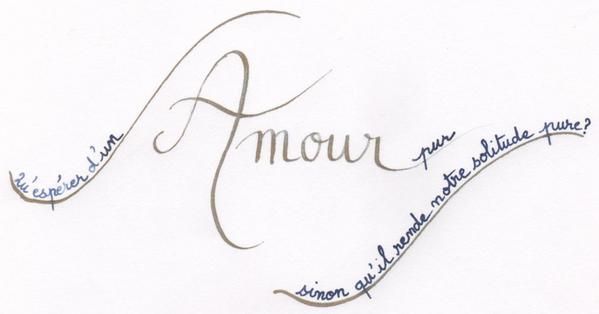 Qu'espérer d'un
Amour pur
sinon qu'il rende notre solitude pure?